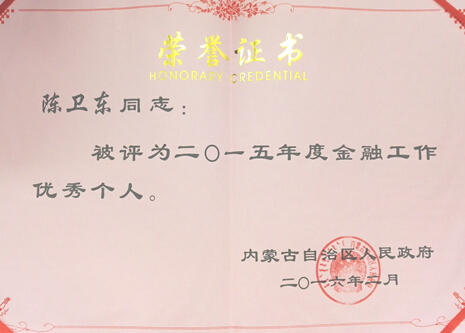 荣誉证书
HONORARY CREDENTIAL
陈卫东同志：
被评为二〇一五年度金融工作
优秀个人。
内蒙古自治区人民政府
二〇一六年二月